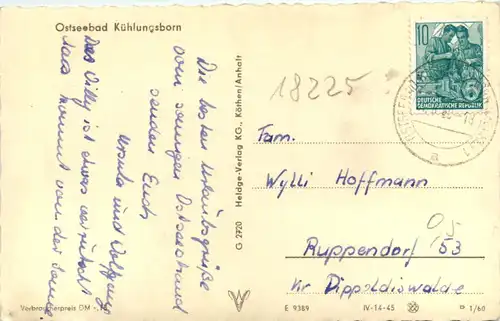 Ostseebad Kühlungsborn
Die besten Urlaubsgrüße
vom sonnigen Ostseestrand
senden Euch
Ursula und Wolfgang
Das Dilly ist etwas verrutscht
das kommt von der Sonne
Verbraucherpreis DM
G 2920 Heldge-Verlag KG., Köthen/Anhalt
18225
10
DEUTSCHE
DEMOKRATISCHE REPUBLIK
a
Fam.
Wylli Hoffmann
05
Ruppendorf 53
Kr. Dippoldiswalde
E 9389 IV-14-45 1/60